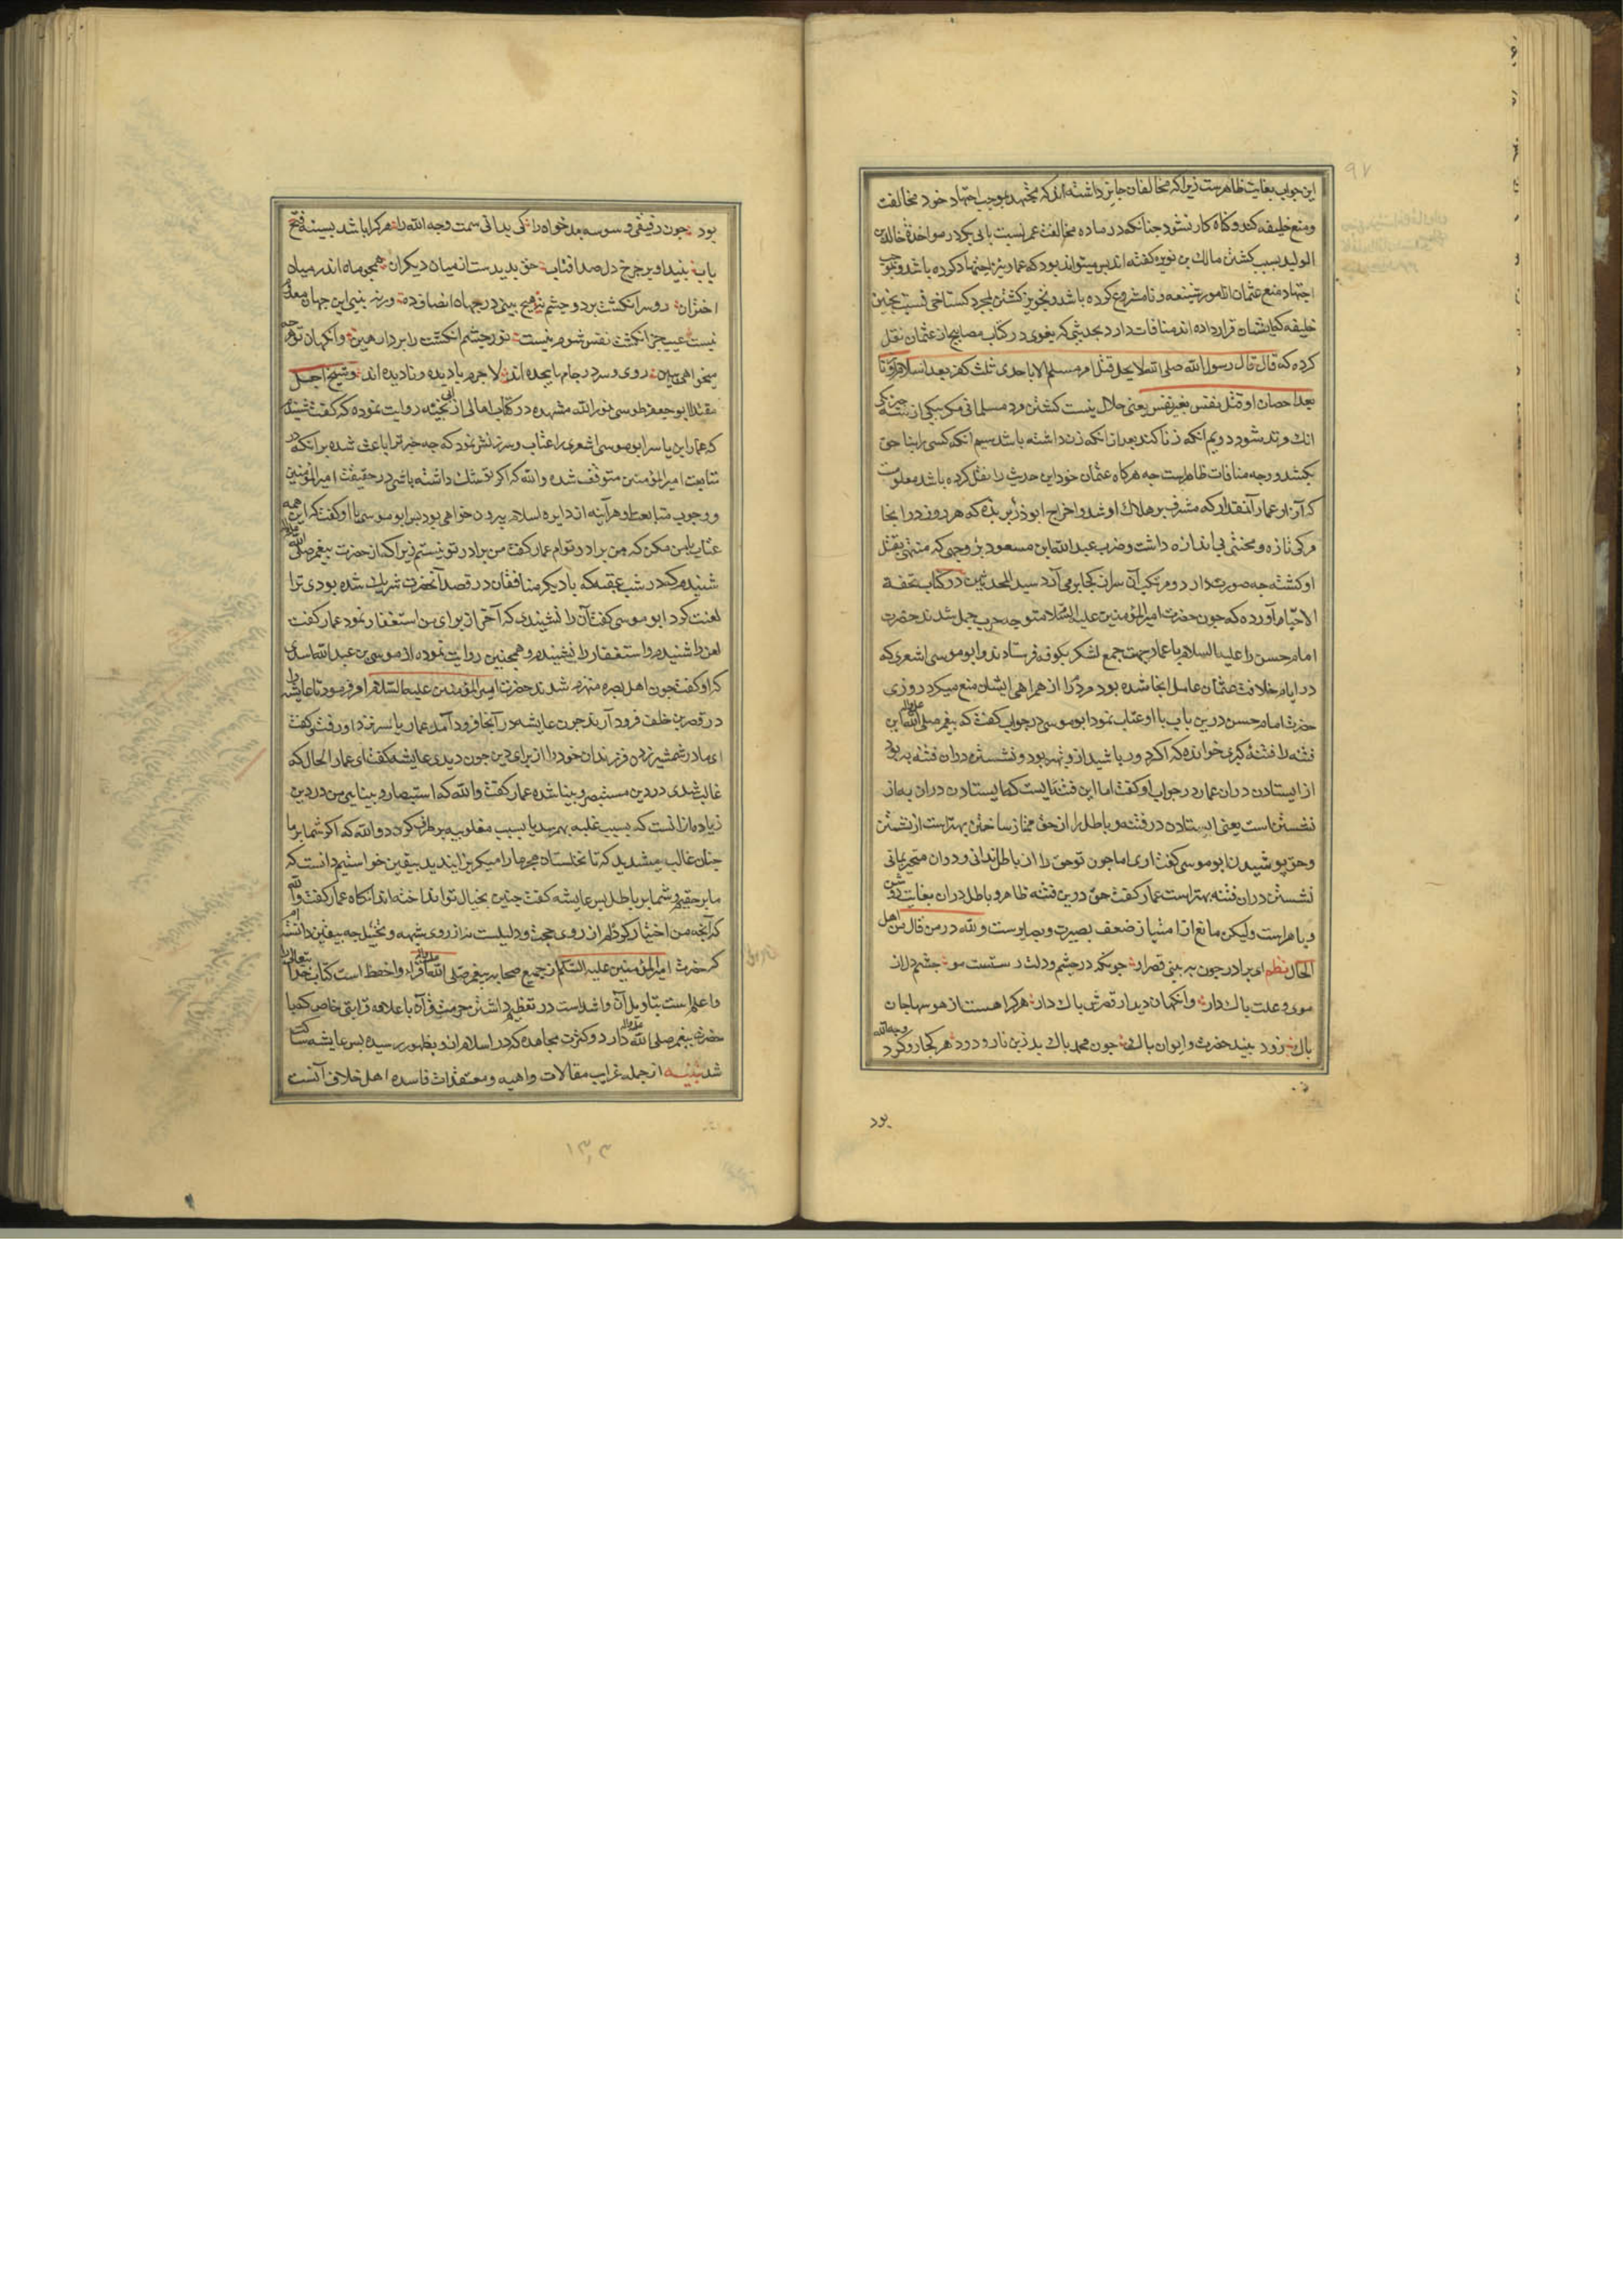 ۹۷
این جواب بغایت ظاهرست زیرا که مخالفان جایز داشته‌اند که مجتهد بموجب اجتهاد خود مخالفت
ومنع خلیفه کند وگناه کار نشود چنانکه در ماده مخالفت عمر نسبت بابی بکر در مواخذهٔ خالد بن
الولید بسبب کشتن مالک بن نویره گفته اند پس میتواند بود که عمار نیز اجتهاد کرده باشد وبموجب
اجتهاد منع عثمان از امور شنیعه ونامشروع کرده باشد وتجویز کشتن بمجرد گستاخی نسبت بچنین
خلیفه که ایشان قرار داده اند منافات دارد بحدیثی که بغوی در کتاب مصابیح از عثمان نقل
کرده که قال قال رسول الله صلی الله لا یحل قتل امرء مسلم الا باحدی ثلث کفر بعد اسلام او زنا
بعد احصان او قتل نفس بغیر نفس یعنی حلال نیست کشتن مرد مسلمانی مگر بیکی از سه چیز یکی
آنک مرتد شود دویم آنکه زنا کند بعد از آنکه زن داشته باشد سیم آنکه کسی را بناحق
بکشد ووجه منافات ظاهرست چه هرگاه عثمان خود این حدیث را نقل کرده باشد معلوم است
که آزار عمار آنقدر که مشرف بر هلاک او شد واخراج ابوذر بربذه که هر روز در آنجا
مرگی تازه ومحنتی بی اندازه داشت وضرب عبد الله ابن مسعود بر وجهی که منتهی بقتل
او گشته چه صورت دارد ومرتکب آن سر از کجا بر می آرد سید المحدثین در کتاب تحفة
الاحبا آورده که چون حضرت امیر المؤمنین علیه السلام متوجه حرب جمل شدند حضرت
امام حسن را علیه السلام با عمار بجهت جمع لشکر بکوفه فرستادند وابو موسی اشعری که
در ایام خلافت عثمان عامل آنجا شده بود مردم را از همراهی ایشان منع میکرد روزی
حضرت امام حسن درین باب با او عتاب نمود ابو موسی در جواب گفت که پیغمبر صلی الله این
فتنه را فتنهٔ کبری خوانده که اگر دور باشید ازو بهتر بود ونشستن در آن فتنه به بود
از ایستادن در آن عمار در جواب او گفت اما این فتنه‌ایست که ایستادن در آن به از
نشستن است یعنی ایستادن در فتنه وباطل را از حق ممتاز ساختن بهتر است از نشستن
وحق پوشیدن ابو موسی گفت آری اما چون تو حق را از باطل ندانی ودر آن متحیر بمانی
نشستن در آن فتنه بهتر است عمار گفت حق درین فتنه ظاهر وباطل در آن بغایت روشن
وباهر است ولیکن مانع از امتیاز ضعف بصیرت وبصر اوست ولله در من قال من اهل
الحال نظم ای برادر چون به بینی قصر او چونکه در چشم ودلت رستست مو چشم دل از
موی وعلت پاک دار وانگهان دیدار قصرش پاک دار هر که را هست از هوسها جان
پاک زود بیند حضرت وایوان پاک چون محمد پاک بد زین نار ودود هر کجا رو کرد وجه الله
بود
بود چون رفیقی وسوسه بدخواه را کی بدانی سمت وجه الله را هر که را باشد بسینه فتح
باب بیند او بر چرخ دل صد آفتاب حق پدیدست از میان دیگران همچو ماه اندر میان
اختران دو سر انگشت بر دو چشم نه هیچ بینی در جهان انصاف ده ور نه بینی این جهان معدوم
نیست عیب جز انگشت نفس شوم نیست تو ز چشم انگشت را بردار هین وآنگهان تو هر چه
میخواهی ببین روی وسر در جامها پیچیده‌اند لاجرم با دیده ونادیده‌اند وشیخ اجل
مقتدا ابو جعفر طوسی نور الله مشهده در کتاب امالی از ابی نجبه روایت نموده که گفت شنیدم
که عمار ابن یاسر ابو موسی اشعری را عتاب وسرزنش نمود که چه خبر ترا باعث شده بر آنکه در
متابعت امیر المؤمنین متوقف شده والله که اگر تو شک داشته باشی در حقیقت امیر المؤمنین
ووجوب متابعت او هر آینه از دایره اسلام بیرون خواهی بود پس ابو موسی با او گفت که این همه
عتاب با من مکن که من برادر توام عمار گفت من برادر تو نیستم زیرا که از حضرت پیغمبر صلی الله
شنیدم که در شب عقبه که با دیگر منافقان در قصد آنحضرت شریک شده بودی ترا
لعنت کرد ابو موسی گفت آن را نشنیدی که آخر از برای من استغفار نمود عمار گفت
لعن را شنیدم واستغفار را نشنیدم وهمچنین روایت نموده از موسی بن عبد الله اسدی
که او گفت چون اهل بصره منهزم شدند حضرت امیر المؤمنین علیه السلام امر فرمود تا عایشه را
در قصر بن خلف فرود آرند چون عایشه در آنجا فرود آمد عمار یاسر نزد او رفت وگفت
ای مادر شمشیر زدن فرزندان خود را از برای دین چون دیدی عایشه گفت ای عمار الحال که
غالب شدی در دین مستبصر وبینا شده عمار گفت والله که استبصار وبینایی من در دین
زیاده از آنست که بسبب غلبه بهم رسد یا بسبب مغلوبیه بر طرف گردد والله که اگر شما بر ما
چنان غالب میشدید که تا نخلستان هجر ما را میگریزانیدید بیقین خواستیم دانست که
ما بر حقیم وشما بر باطل پس عایشه گفت چنین بخیال تو انداخته‌اند آنگاه عمار گفت والله
که آنچه من اختیار کرده‌ام از روی حجت ودلیلست نه از روی شبهه وتخیل چه بیقین دانسته‌ام
که حضرت امیر المؤمنین علیه السلم از جمیع صحابه پیغمبر صلی الله اقرأ واحفظ است کتاب خدا تعالی را
واعلم است بتاویل آن واشد است در تعظیم داشتن حرمت قرآن با علاقه قرابتی خاص که با
حضرت پیغمبر صلی الله دارد وکثرت مجاهده که در اسلام ازو بظهور رسیده پس عایشه ساکت
شد تنبیه از جمله غرایب مقالات واهیه ومعتقدات فاسده اهل خلاف آنست